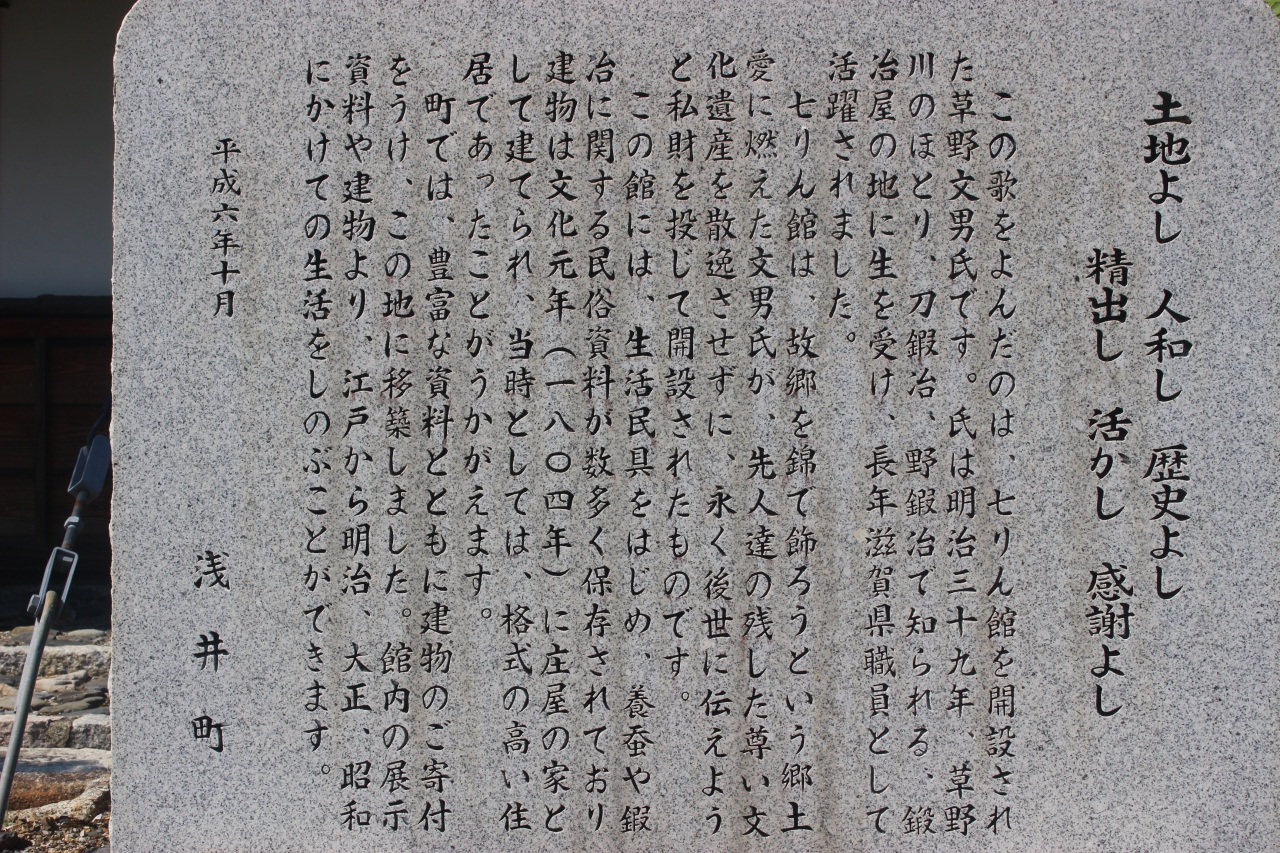 土地よし 人和し 歴史よし
精出し 活かし 感謝よし
この歌をよんだのは、七りん館を開設され
た草野文男氏です。氏は明治三十九年、草野
川のほとり、刀鍜冶、野鍜冶で知られる、鍛
冶屋の地に生を受け、長年滋賀県職員として
活躍されました。
七りん館は、故郷を錦で飾ろうという郷土
愛に燃えた文男氏が、先人達の残した尊い文
化遺産を散逸させずに、永く後世に伝えよう
と私財を投じて開設されたものです。
この館には、生活民具をはじめ、養蚕や鍜
冶に関する民俗資料が数多く保存されており
建物は文化元年(一八〇四年)に庄屋の家と
して建てられ、当時としては、格式の高い住
居であったことがうかがえます。
町では、豊富な資料とともに建物のご寄付
をうけ、この地に移築しました。館内の展示
資料や建物より、江戸から明治、大正、昭和
にかけての生活をしのぶことができます。
平成六年十月
浅井町